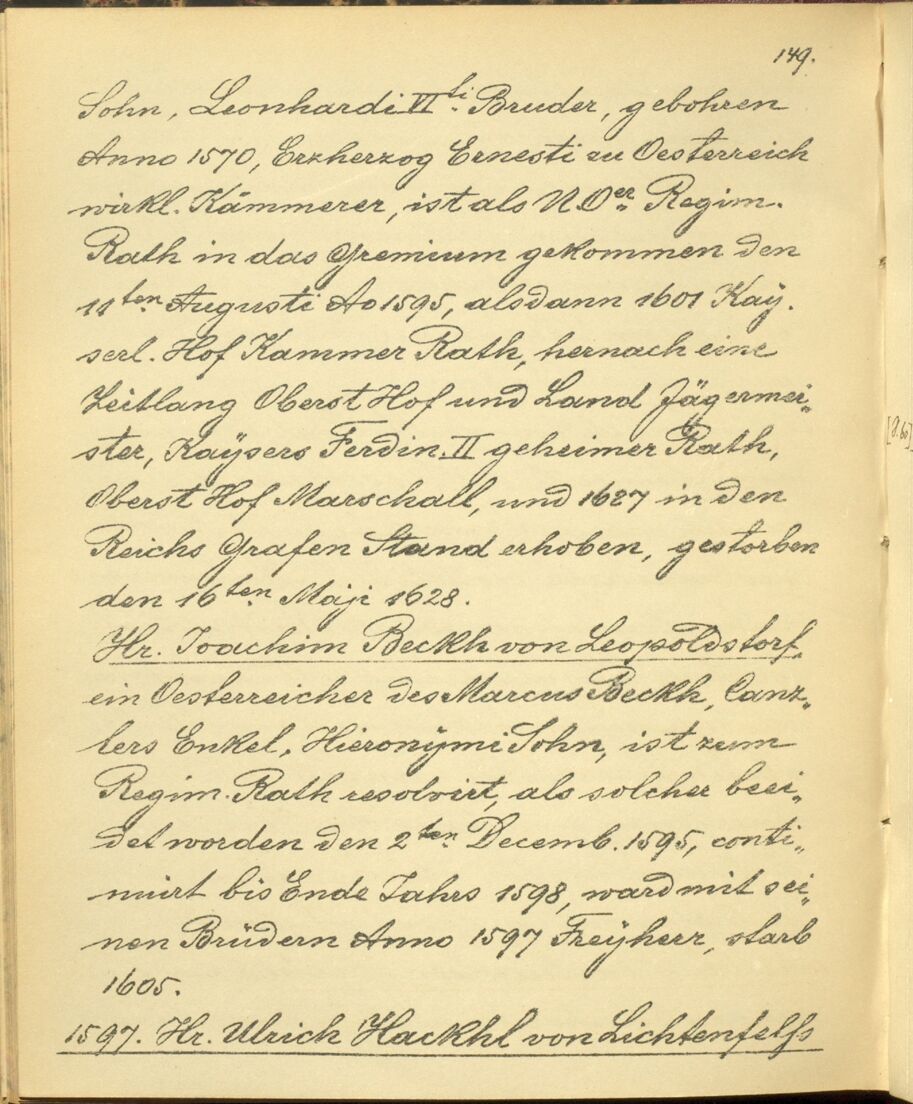 149.
Sohn, Leonhardi VI ti. Bruder, gebohren
Anno 1570, Erzherzog Ernesti zu Oesterreich
wirkl. Kämmerer, ist als N.Oer. Regim.
Rath in das Gremium gekommen den
11ten. Augusti Ao 1595, alsdann 1601 Kaÿ.
serl. Hof Kammer Rath, hernach eine
Zeitlang Oberst Hof und Land Jägermei„
ster, Kaÿsers Ferdin. II geheimer Rath,
Oberst Hof Marschall, und 1627 in den
Reichs Grafen Stand erhoben, gestorben
den 16ten. Maji 1628.
Hr. Joachim Beckh von Leopoldstorf,
ein Oesterreicher des Marcus Beckh, Canz„
lers Enkel, Hieronÿmi Sohn, ist zum
Regim. Rath resolvirt, als solcher beei„
det worden den 2ten. Decemb. 1595, conti„
nuirt bis Ende Jahrs 1598, ward mit sei„
nen Brüdern Anno 1597 Freÿherr, starb
1605.
1597. Hr. Ulrich Hackhl von Lichtenfelfs